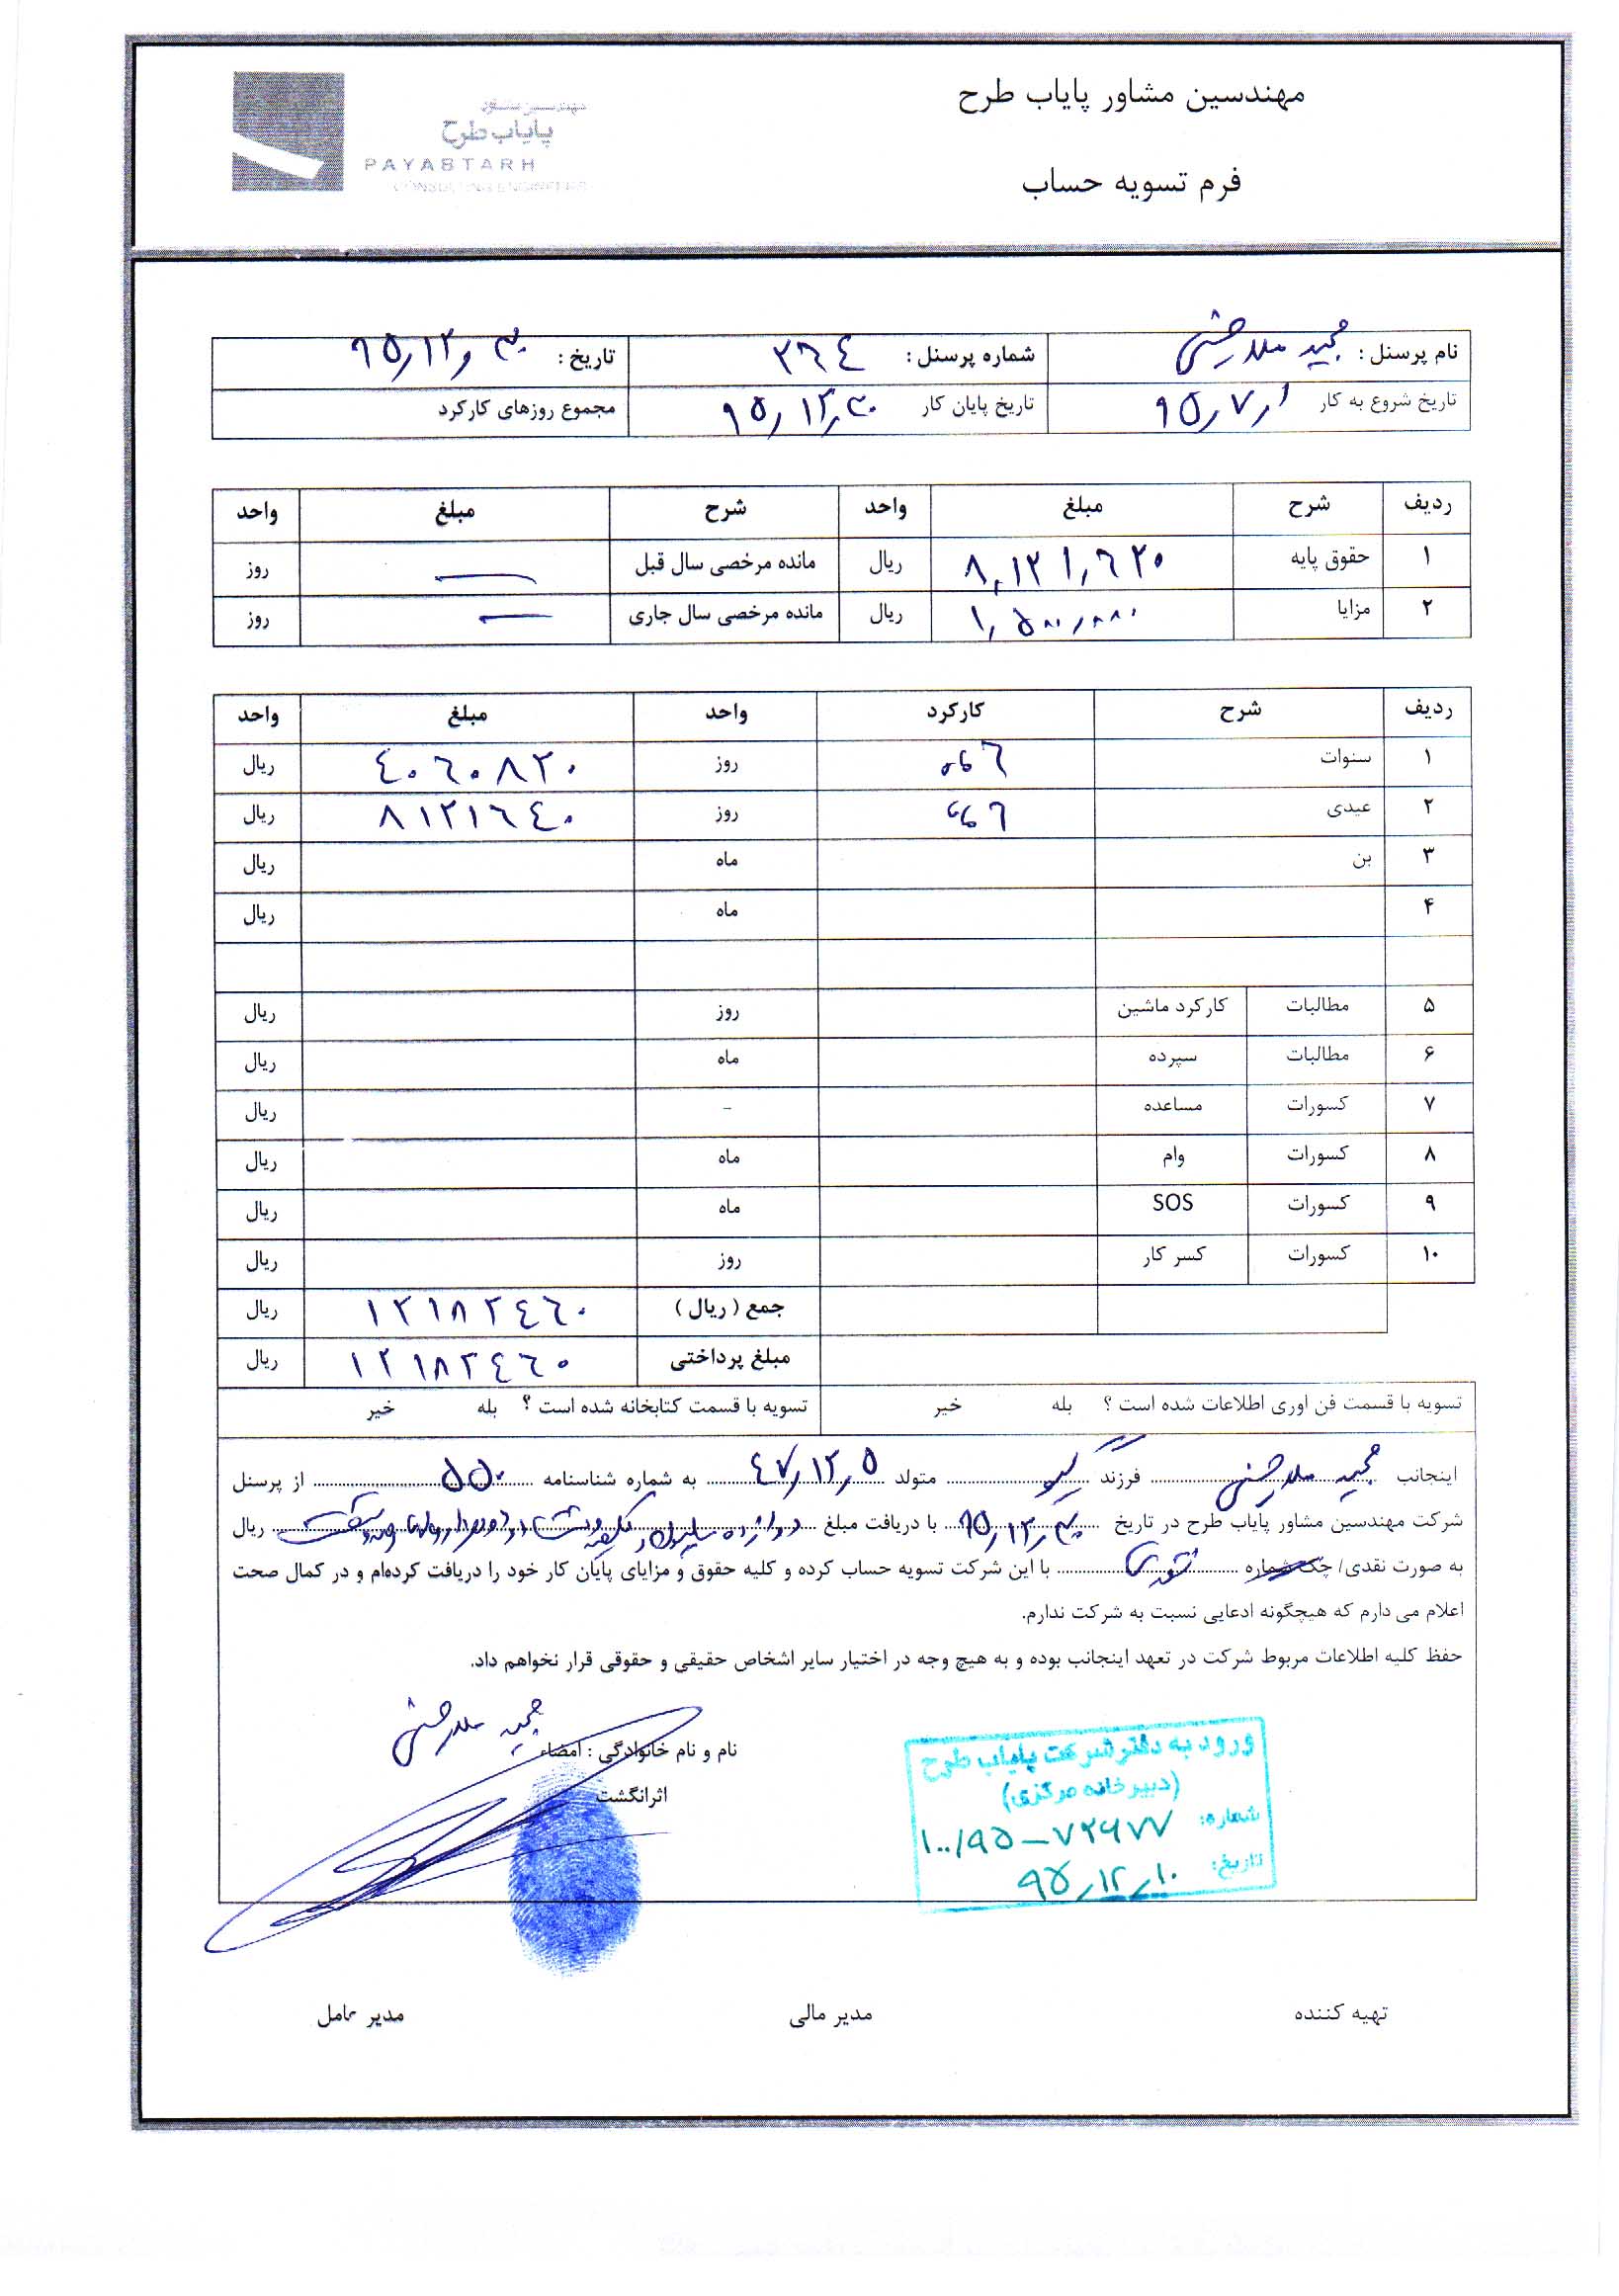 مهندسین مشاور پایاب طرح
فرم تسویه حساب
پایاب طرح
PAYABTARH
CONSULTING ENGINEERS
نام پرسنل : مجید
شماره پرسنل : ٢٦٤
تاریخ : ٩٥,١٢,٣٠
تاریخ شروع به کار ٩٥,٧,١
تاریخ پایان کار ٩٥,١٢,٣٠
مجموع روزهای کارکرد
ردیف شرح مبلغ واحد شرح مبلغ واحد
۱ حقوق پایه ٨,١٢١,٦٢٠ ریال مانده مرخصی سال قبل — روز
۲ مزایا ١,٥٠٠,٠٠٠ ریال مانده مرخصی سال جاری — روز
ردیف شرح کارکرد واحد مبلغ واحد
۱ سنوات روز ٤٠٦٠٨٢٠ ریال
۲ عیدی روز ٨١٢١٦٤٠ ریال
۳ بن ماه ریال
۴ ماه ریال
۵ مطالبات کارکرد ماشین روز ریال
۶ مطالبات سپرده ماه ریال
۷ کسورات مساعده - ریال
۸ کسورات وام ماه ریال
۹ کسورات SOS ماه ریال
۱۰ کسورات کسر کار روز ریال
جمع ( ریال ) ١٢١٨٢٤٦٠ ریال
مبلغ پرداختی ١٢١٨٢٤٦٠ ریال
تسویه با قسمت فن اوری اطلاعات شده است ؟ بله خیر
تسویه با قسمت کتابخانه شده است ؟ بله خیر
اینجانب مجید فرزند متولد ٤٧,١٢,٥ به شماره شناسنامه ٥٥٠ از پرسنل
شرکت مهندسین مشاور پایاب طرح در تاریخ ٩٥,١٢,٣٠ با دریافت مبلغ دوازده میلیون و ریال
به صورت نقدی/ چک شماره با این شرکت تسویه حساب کرده و کلیه حقوق و مزایای پایان کار خود را دریافت کرده‌ام و در کمال صحت
اعلام می دارم که هیچگونه ادعایی نسبت به شرکت ندارم.
حفظ کلیه اطلاعات مربوط شرکت در تعهد اینجانب بوده و به هیچ وجه در اختیار سایر اشخاص حقیقی و حقوقی قرار نخواهم داد.
مجید
نام و نام خانوادگی : امضاء
اثرانگشت
ورود به دفتر شرکت پایاب طرح
(دبیرخانه مرکزی)
شماره: ۱۰۰/۹۵-۷۲۶۷۷
تاریخ: ۹۵,۱۲,۱۰
تهیه کننده
مدیر مالی
مدیر عامل